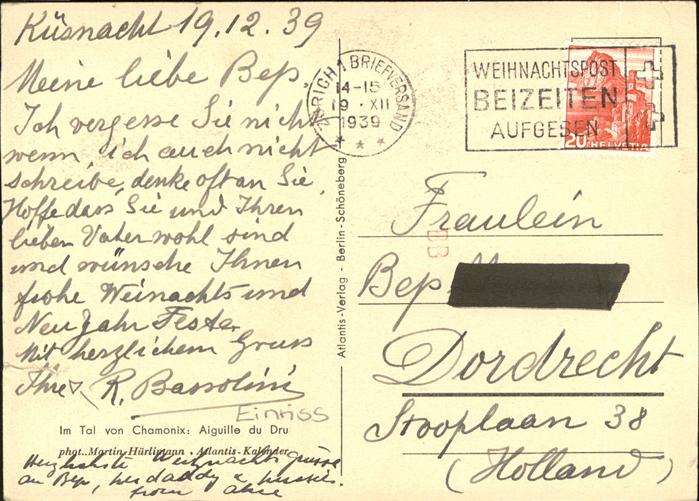 Küsnacht 19.12.39
Meine liebe Bep,
Ich vergesse Sie nicht
wenn ich auch nicht
schreibe, denke oft an Sie,
Hoffe dass Sie und Ihren
lieben Vater wohl sind
und wünsche Ihnen
frohe Weinachts und
Neu Jahr Feste
Mit herzlichem Gruss
Ihre R. Bassolini
Einriss
Im Tal von Chamonix: Aiguille du Dru
phot. Martin Hürlimann - Atlantis-Kalender
Herzlichste Weihnachts grüsse
an Bep, her daddy &
from
Atlantis-Verlag - Berlin-Schöneberg
ZÜRICH 1 BRIEFVERSAND
14-15
19. XII
1939
WEIHNACHTSPOST
BEIZEITEN
AUFGEBEN
20 HELVETIA
Fraulein
Bep
Dordrecht
Stooplaan 38
(Holland)